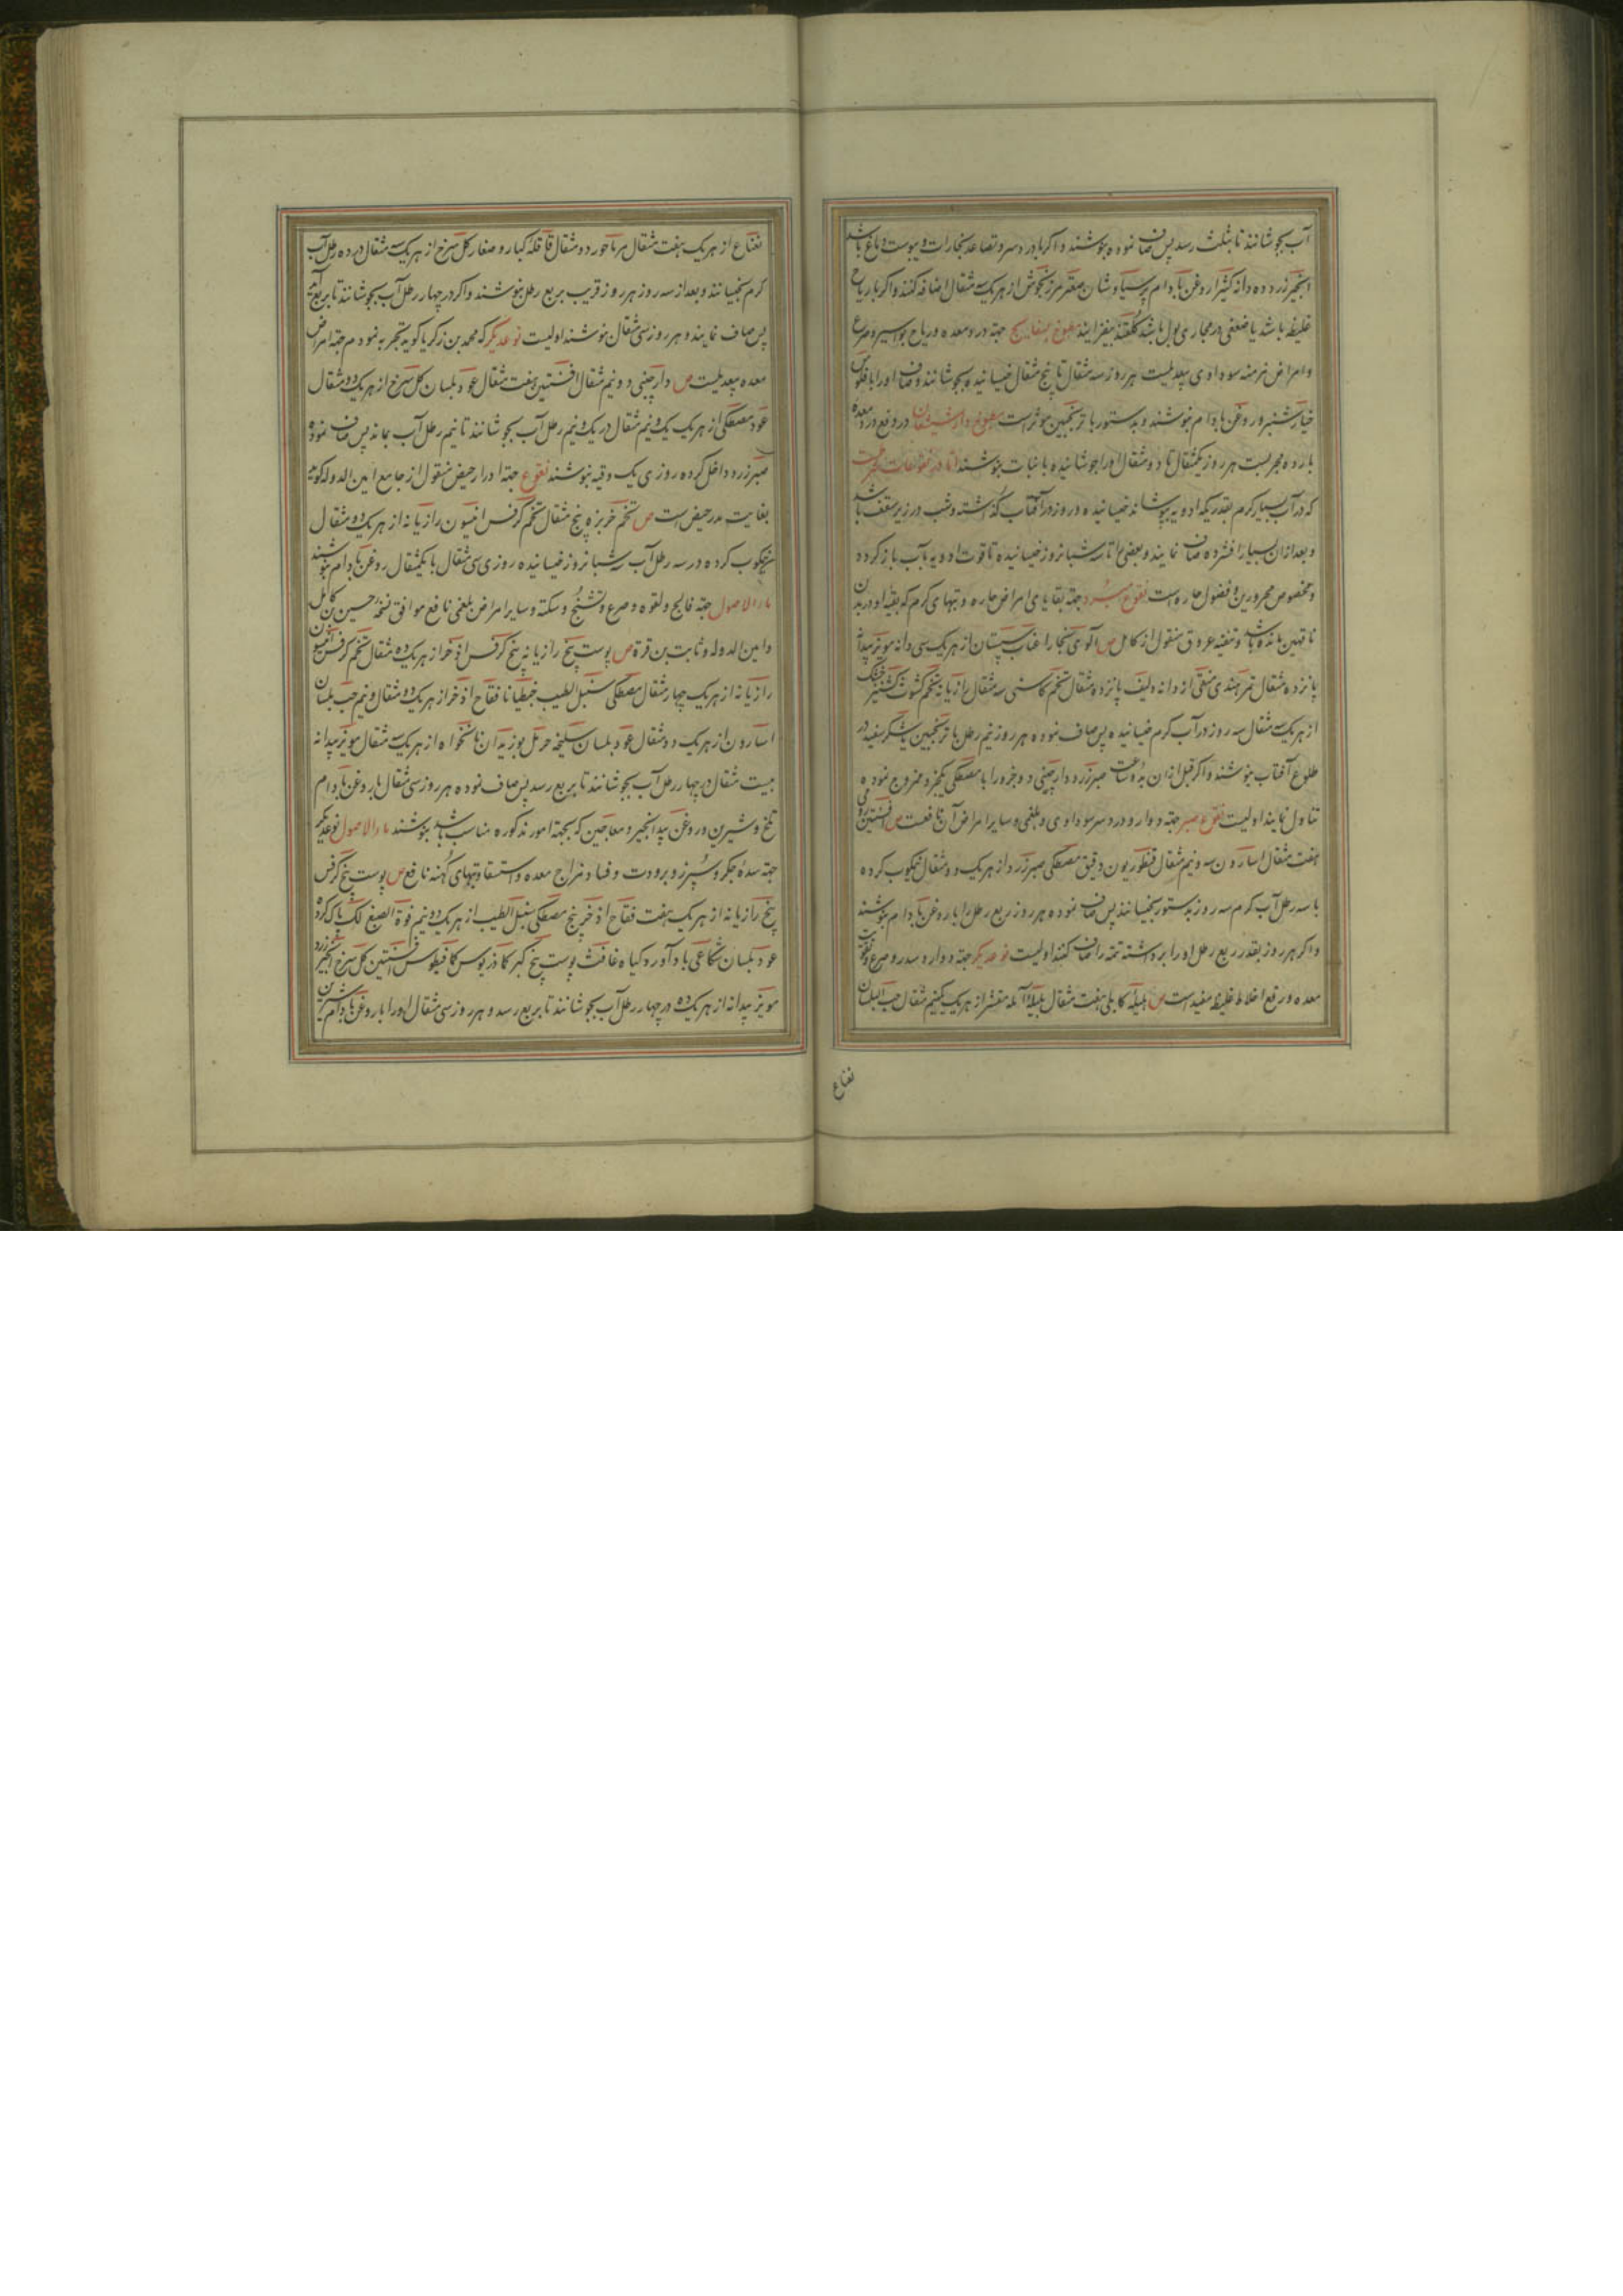 آب بجوشانند تا بثلث رسد پس صاف نموده بنوشند و اگر با درد سر و تصاعد بخارات و یبوست دماغ باشد
انجیر زرد ده دانه کثیرا روغن بادام پرسیاوشان صعتر مرزنجوش از هریک سه مثقال اضافه کنند و اگر با ریاح
غلیظه باشد یا ضعفی در مجاری بول باشد گلقند بیفزایند مطبوخ بسفایج جهة درد معده و ریاح بواسیر و صرع
و امراض مزمنه سوداوی بیعدیلست هر روز سه مثقال تا پنج مثقال خیسانیده بجوشانند و صاف او را با فلوس
خیارشنبر و روغن بادام بنوشند و بدستور با ترنجبین موثر است مطبوخ دارشیشعان در رفع درد معده
بارده مجربست هر روز یکمثقال تا دو مثقال او را جوشانیده با نبات بنوشند اما در نقوعات بهتر آنست
که در آب بسیار گرم بقدریکه ادویه بپوشاند خیسانیده در روز در آفتاب گذاشته و شب در زیر سقف باشد
و بعد از آن بسیار افشرده صاف نمایند و بعضی را تا سه شبانروز خیسانیده تا قوت ادویه بآب باز گردد
و مخصوص محرورین و فضول حاره است نقوع مبرد جهة بقایای امراض حاره و تبهای گرم که بقیه او در بدن
ناقهین مانده باشد و تنقیه عروق منقول از کامل ص آلوی بخارا عناب سپستان از هریک سی دانه مویز بیدانه
پانزده مثقال تمر هندی منقی از دانه و لیف پانزده مثقال تخم کاسنی سه مثقال رازیانه تخم کشوث کشنیز خشک
از هریک سه مثقال سه روز در آب گرم خیسانیده پس صاف نموده هر روز نیم رطل با ترنجبین یا شکر سفید در
طلوع آفتاب بنوشند و اگر قبل از آن بدو ساعت صبر زرد و دارچینی دو جزو را با مصطکی یکجزو ممزوج نموده
تناول نمایند اولیست نقوع صبر جهة دوار و درد سر سوداوی و بلغمی و سایر امراض آن نافعست ص افسنتین رومی
هفت مثقال اسارون سه و نیم مثقال قنطوریون دقیق مصطکی صبر زرد از هریک دو مثقال نیمکوب کرده
با سه رطل آب گرم سه روز بدستور بخیسانند پس صاف نموده هر روز ربع رطل را با روغن بادام بنوشند
و اگر هر روز بقدر ربع رطل او را برداشته تتمه را صاف نکنند اولیست نوعدیگر جهة دوار و سدر و صرع و تقویت
معده و رفع اخلاط غلیظه مفید است ص هلیله کابلی هفت مثقال بلیله آمله مقشر از هریک یکنیم مثقال حب البلسان
نعناع
نعناع از هریک هفت مثقال مرماحور دو مثقال قاقله کبار و صغار گل سرخ از هریک سه مثقال در ده رطل آب
گرم بخیسانند و بعد از سه روز هر روز قریب بربع رطل بنوشند و اگر در چهار رطل آب بجوشانند تا بربع آید
پس صاف نمایند و هر روز سی مثقال بنوشند اولیست نوعدیگر که محمد بن زکریا گوید تجربه نمودم جهة امراض
معده بیعدیلست ص دارچینی دو نیم مثقال افسنتین هفت مثقال عود بلسان گل سرخ از هریک ده مثقال
عود مصطکی از هریک یک و نیم مثقال در یک و نیم رطل آب بجوشانند تا نیم رطل آب بماند پس صاف نموده
صبر زرد داخل کرده روزی یک وقیه بنوشند نقوع جهة ادرار حیض منقول از جامع امین الدوله گوید
بغایت مدر حیض است ص تخم خربزه پنج مثقال تخم کرفس انیسون رازیانه از هریک ده مثقال
نیمکوب کرده در سه رطل آب سه شبانروز خیسانیده روزی سی مثقال با یکمثقال روغن بادام بنوشند
ماء الاصول جهة فالج و لقوه و صرع و تشنج و سکته و سایر امراض بلغمی نافع موافق نسخه حسین کامل
و امین الدوله و ثابت بن قرة ص پوست بیخ رازیانه بیخ کرفس اذخر از هریک ده مثقال تخم کرفس انیسون
رازیانه از هریک چهار مثقال مصطکی سنبل الطیب جنطیانا فقاح اذخر از هریک دو مثقال و نیم حب بلسان
اسارون از هریک دو مثقال عود بلسان سلیخه حرمل بوزیدان نانخواه از هریک سه مثقال مویز بیدانه
بیست مثقال در چهار رطل آب بجوشانند تا بربع رسد پس صاف نموده هر روز سی مثقال با روغن بادام
تلخ و شیرین و روغن بیدانجیر و معاجین که بجهة امور مذکوره مناسب باشد بنوشند ماء الاصول نوعدیگر
جهة سده جگر و سپرز و برودت و فساد مزاج معده و استسقا و تبهای کهنه نافع ص پوست بیخ کرفس
بیخ رازیانه از هریک هفت فقاح اذخر بیخ مصطکی سنبل الطیب از هریک دو نیم فوة الصبغ لک پاک کرده
عود بلسان شکاعی بادآورد گیاه غافث پوست بیخ کبر کماذریوس کمافیطوس افسنتین گل سرخ انجیر زرد
مویز بیدانه از هریک ده در چهار رطل آب بجوشانند تا بربع رسد و هر روز سی مثقال او را با روغن بادام شیرین